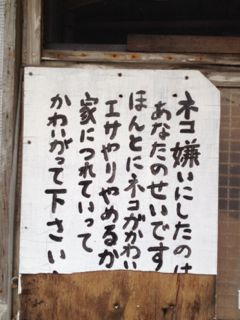 ネコ嫌いにしたのは
あなたのせいです
ほんとにネコがかわい
エサやりやめるか
家につれていって
かわいがって下さい